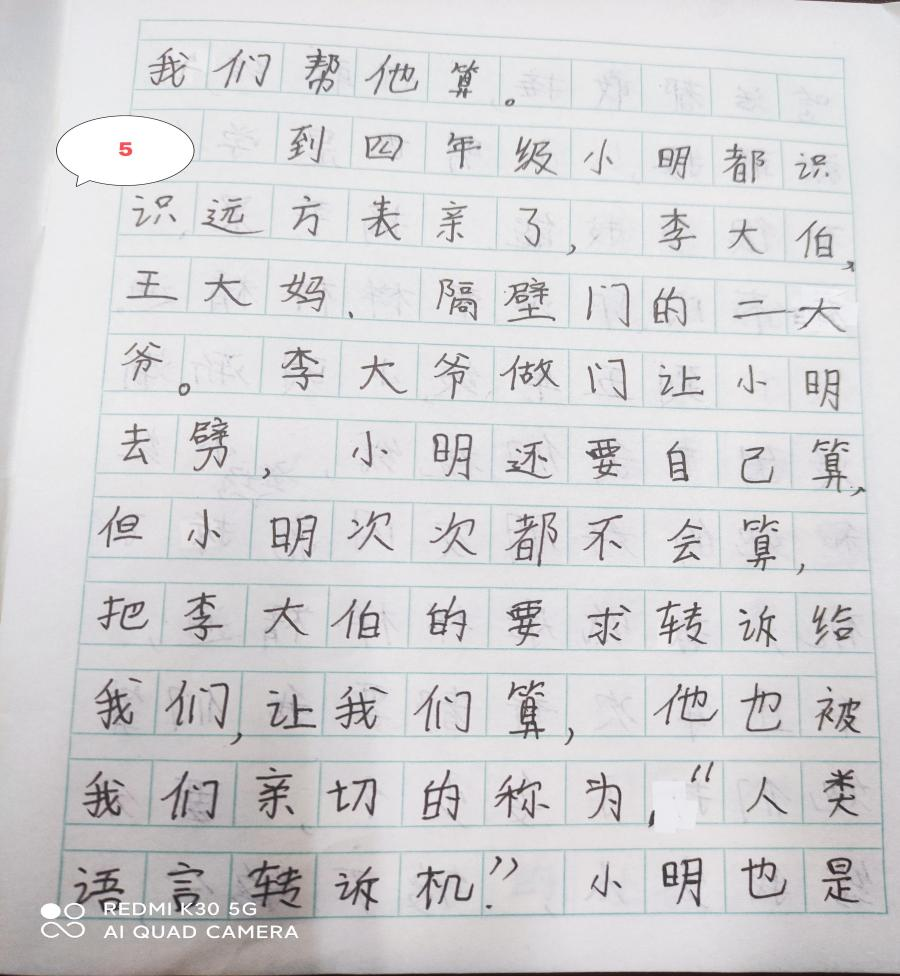 我们帮他算。
5
到四年级小明都识
识远方表亲了，李大伯、
王大妈、隔壁门的二大
爷。李大爷做门让小明
去劈，小明还要自己算，
但小明次次都不会算，
把李大伯的要求转诉给
我们，让我们算，他也被
我们亲切的称为，“人类
语言转诉机”．小明也是
REDMI K30 5G
AI QUAD CAMERA